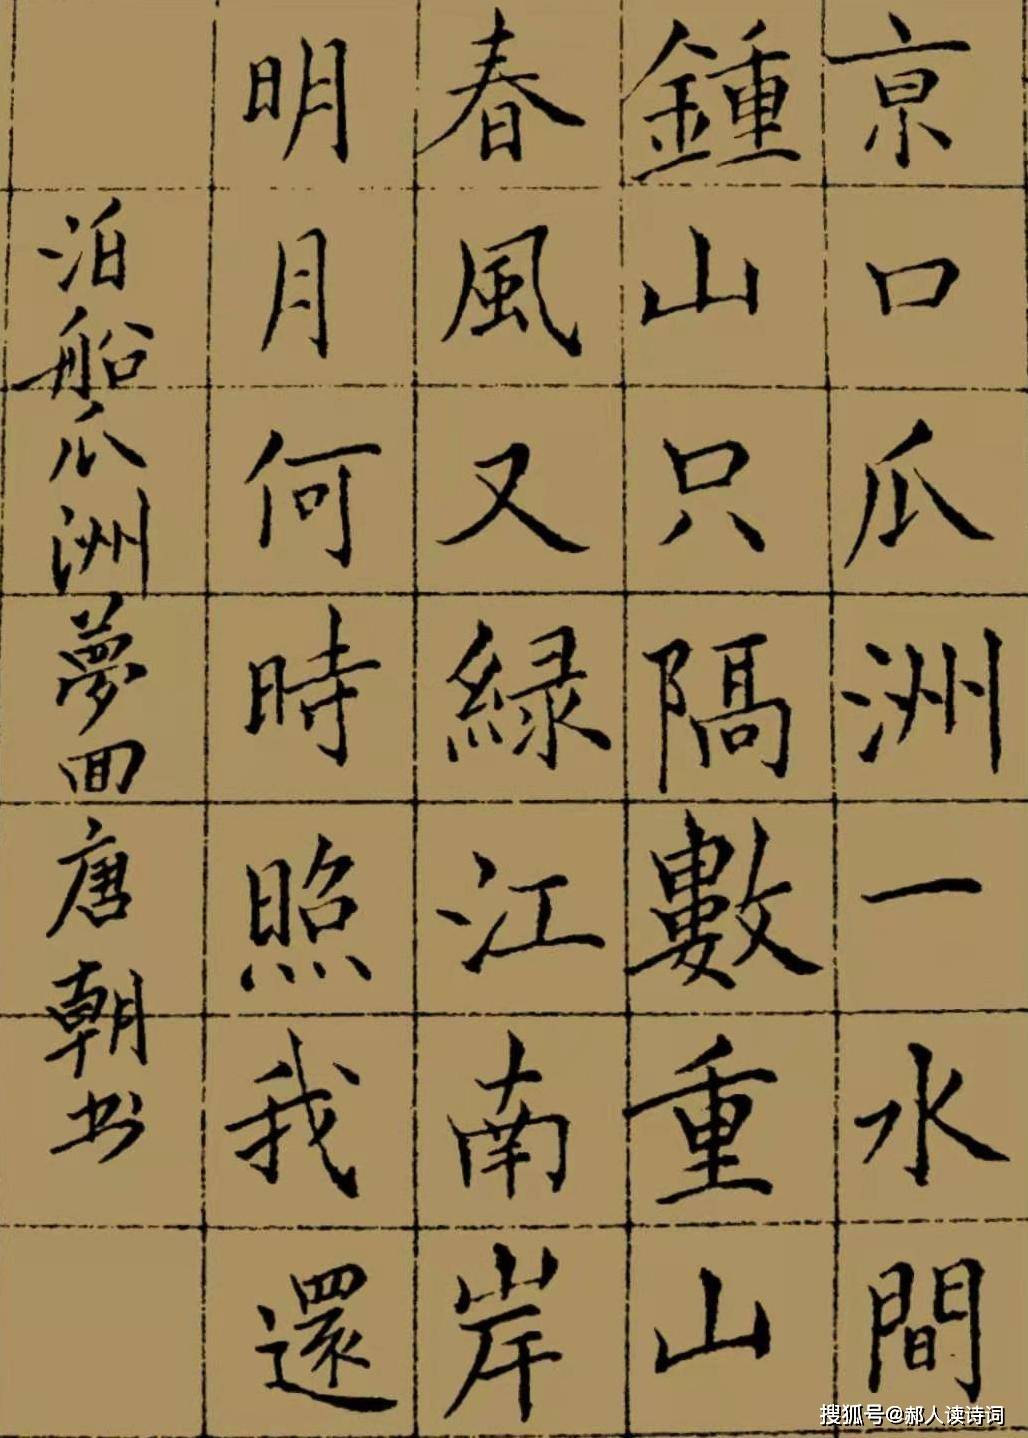 京口瓜洲一水間
鍾山只隔數重山
春風又緑江南岸
明月何時照我還
泊船瓜洲夢回唐朝书
搜狐号@郝人读诗词